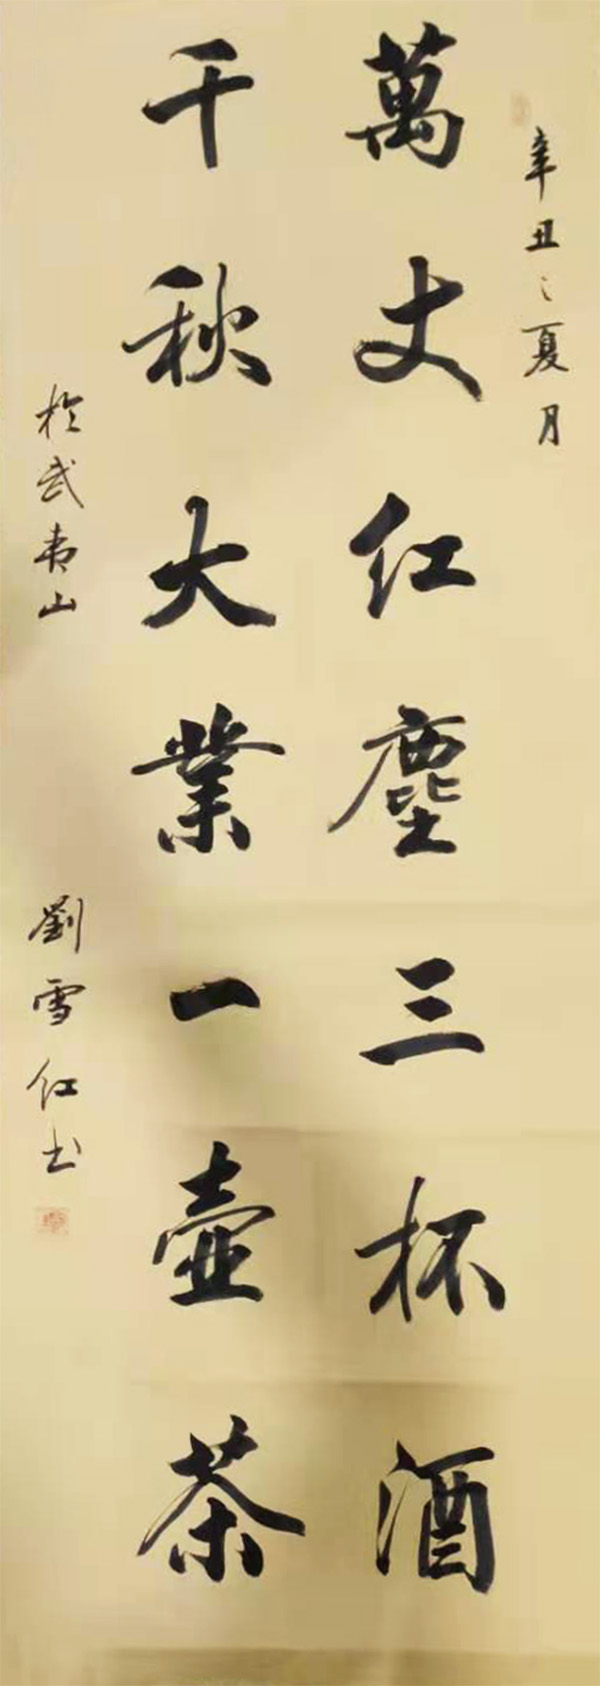 辛丑之夏月
萬丈红塵三杯酒
千秋大業一壺茶
於武夷山
劉雪红书